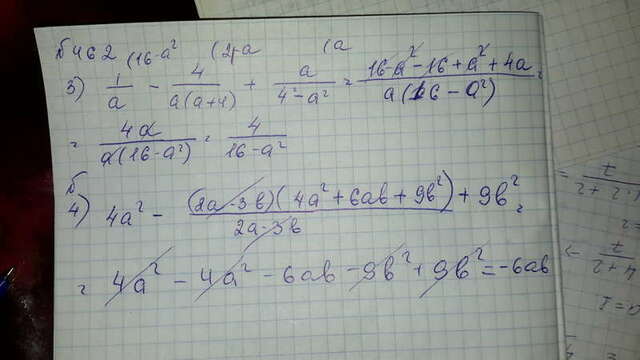 № 462 (16-a² (4-a (a
3) 1/a - 4/a(a+4) + a/4²-a² = 16-a²-16+a²+4a/a(16-a²) =
= 4a/a(16-a²) = 4/16-a²
б
4) 4a² - (2a-3в)(4a²+6aв+9в²)/2a-3в + 9в² =
= 4a² - 4a² - 6aв - 9в² + 9в² = -6aв